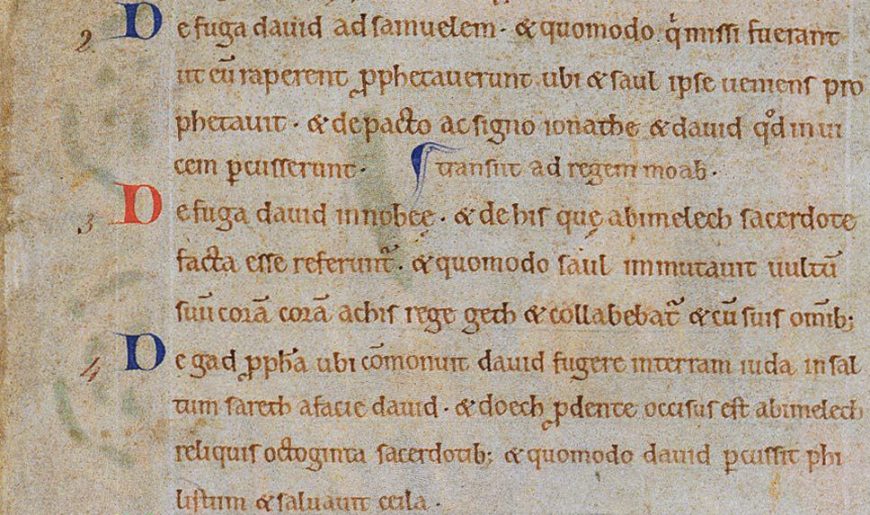 2 De fuga dauid ad samuelem · & quomodo q̇ missi fuerant
ut eū raperent ꝓphetauerunt ubi & saul ipse ueniens pro
phetauit · & de pacto ac signo ionathe & dauid qd̓ in ui
cem ꝑcusserunt · transiit ad regem moab ·
3 De fuga dauid in nobee · & de his quę abimelech sacerdote
facta esse referunt᷑ · & quomodo saul inmutauit uultū
suū corā corā achis rege geth & collabebat᷑ & cū suis omīb;
4 De gad ꝓph̄a ubi cōmonuit dauid fugere in terram iuda in sal
tum sareth a facie dauid · & doech ꝓdente occisus est abimelech
reliquis octoginta sacerdotib; & quomodo dauid ꝑcussit phi
listum & saluauit ceila ·